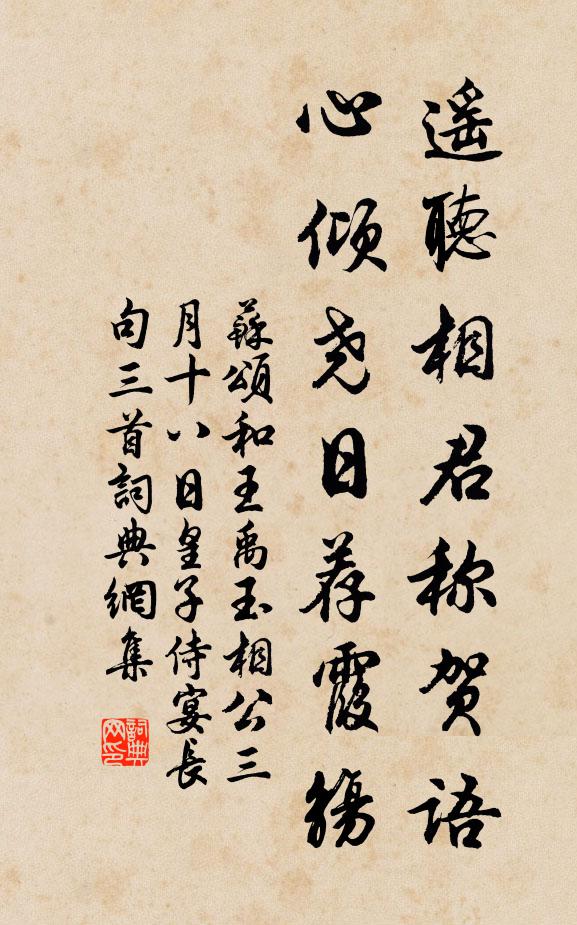 遥聽相君称贺語
心倾尧日荐霞觴
蘇頌和王禹玉相公三
月十八日皇子侍宴長
句三首詞典網集
詞典网印